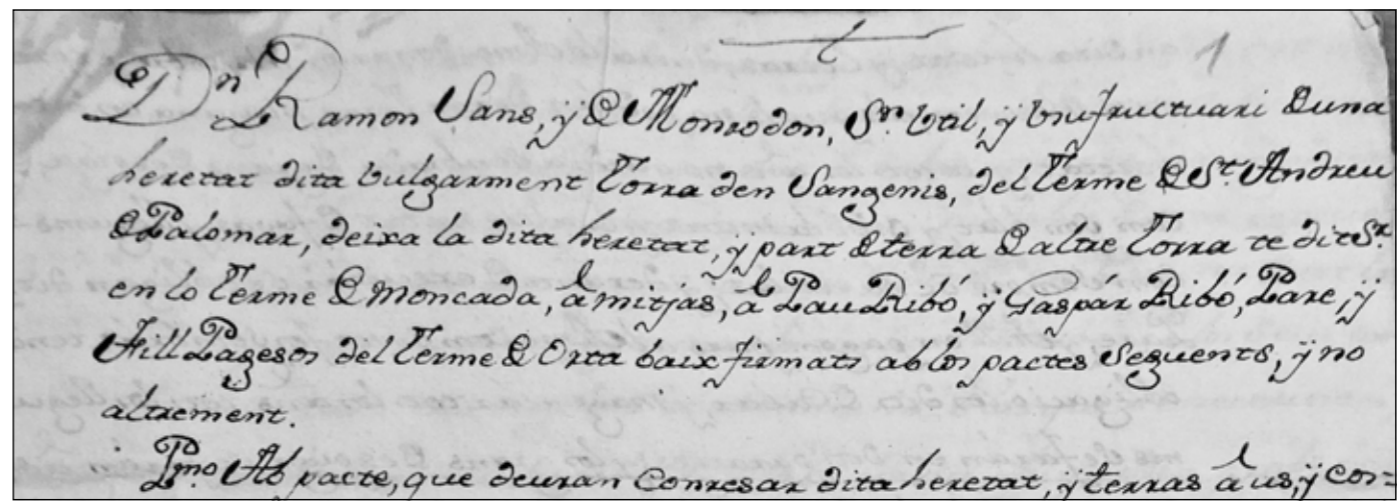 1
Dn Ramon Sans, ÿ de Monrodon, Sr. Vtil, ÿ Vsufructuari de una
heretat dita Vulgarment Torra den Sangenis, del Terme de St. Andreu
de Palomar, deixa la dita heretat, y part de terra de altre Torra te dit Sr.
en lo Terme de Moncada, à mitjas, à Pau Ribó, ÿ Gaspár Ribó, Pare, ÿ
Fill Pagesos del Terme de Orta baix firmats ab los pactes Seguents, ÿ no
altrement.
Pmo. Ab pacte, que deuran Conresar dita heretat, ÿ terras à us, ÿ cos=